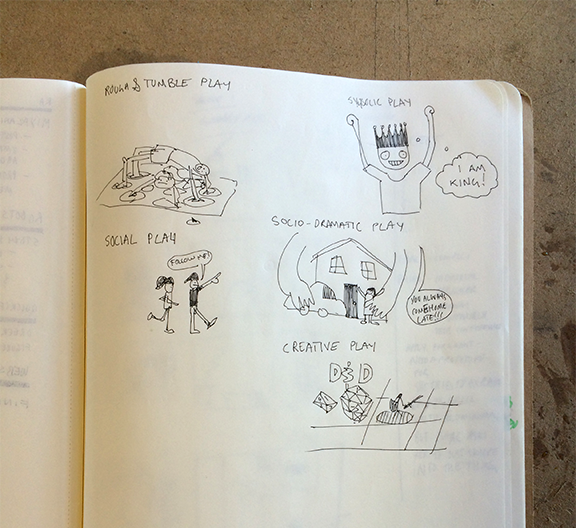 ROUGH & TUMBLE PLAY
SYBOLIC PLAY
I AM
KING!
SOCIAL PLAY
FOLLOW ME!
SOCIO-DRAMATIC PLAY
YOU ALWAYS
COME HOME
LATE!!!
CREATIVE PLAY
D&D